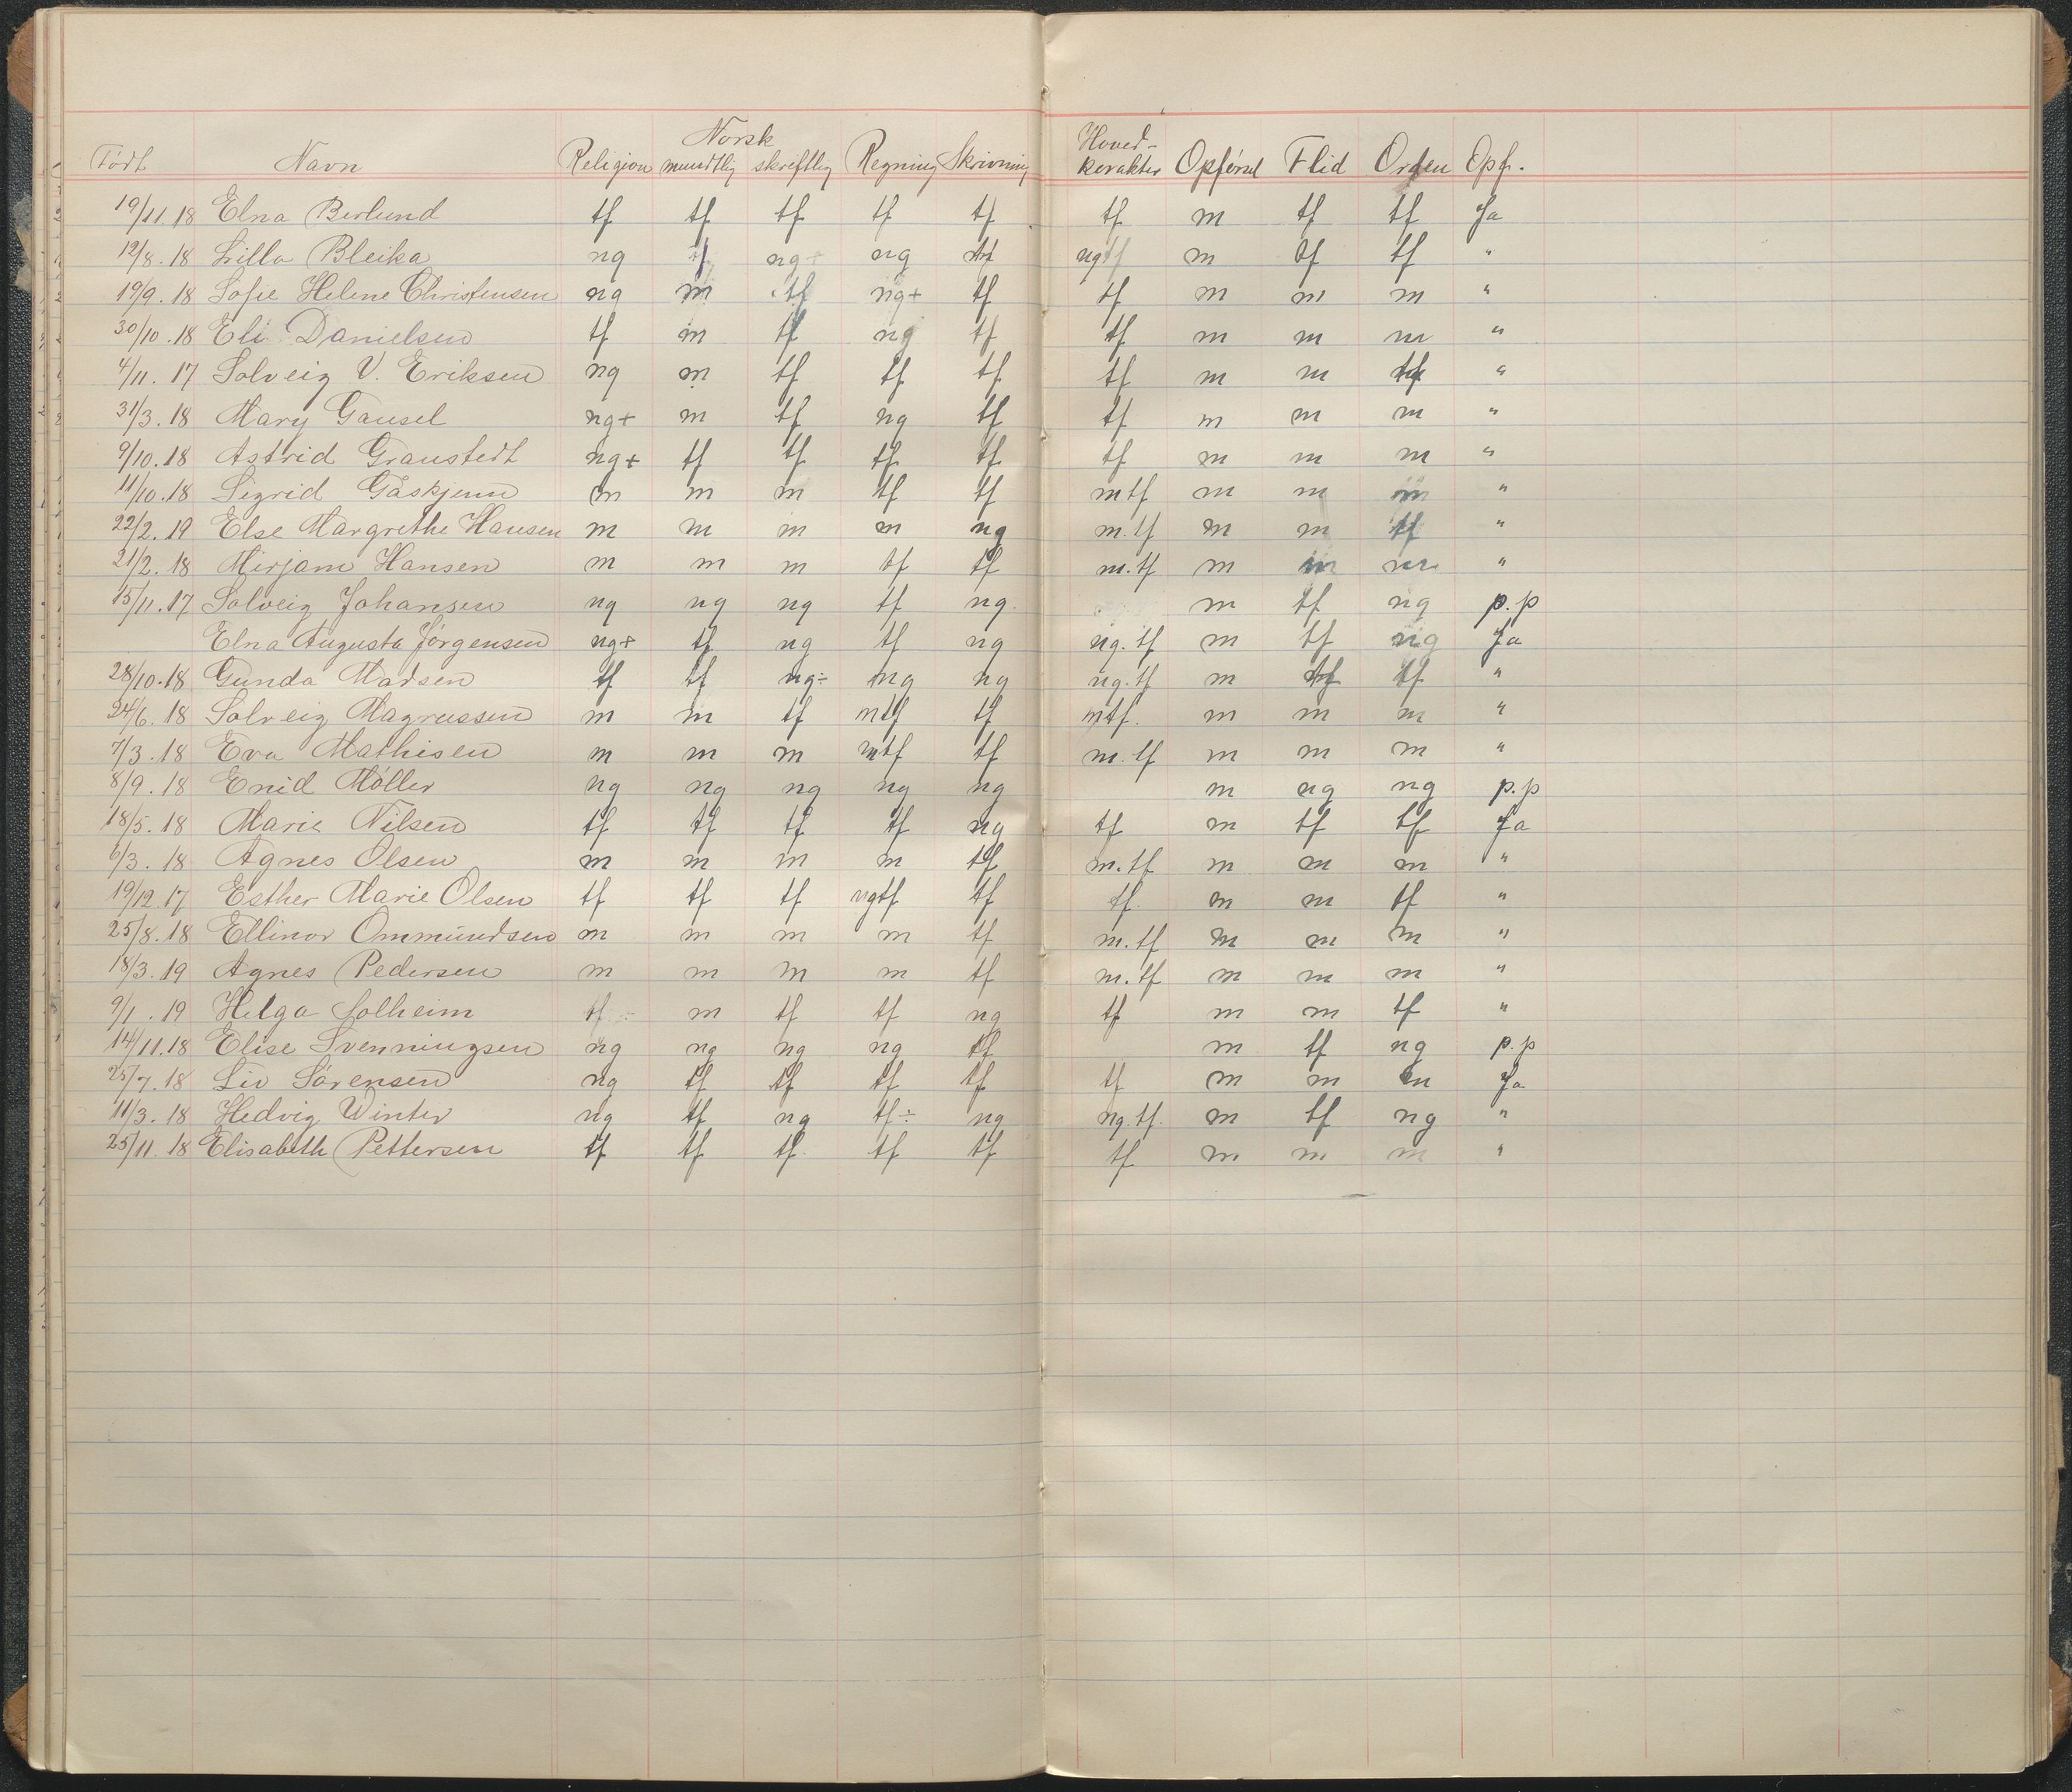 Norsk Hoved-
Født Navn Religion mundtlig skriftlig Regning Skrivning karakter Opførsel Flid Orden Opf.
19/11.18 Elna Berlund tf tf tf tf tf tf m tf tf Ja
12/8.18 Lilla Bleika ng tf ng÷ ng tf ngtf m tf tf "
19/9.18 Sofie Helene Christensen ng m tf ng+ tf tf m m m "
30/10.18 Eli Danielsen tf m tf ng tf tf m m m "
4/11.17 Solveig V. Eriksen ng m tf tf tf tf m m tf "
31/3.18 Mary Gausel ng+ m tf ng tf tf m m m "
9/10.18 Astrid Granstedt ng+ tf tf tf tf tf m m m "
11/10.18 Sigrid Gåskjenn m m m tf tf m.tf m m m "
22/2.19 Else Margrethe Hansen m m m m ng m.tf m m tf "
21/2.18 Mirjam Hansen m m m tf tf m.tf m m m "
15/11.17 Solveig Johansen ng ng ng tf ng m tf ng p.p
Elna Augusta Jørgensen ng+ tf ng tf ng ng.tf m tf ng Ja
28/10.18 Gunda Madsen tf tf ng÷ ng ng ng.tf m tf tf "
24/6.18 Solveig Magnussen m m tf mtf tf mtf. m m m "
7/3.18 Eva Mathisen m m m mtf tf m.tf m m m "
8/9.18 Enid Møller ng ng ng ng ng m ng ng p.p
18/5.18 Marie Nilsen tf tf tf tf ng tf m tf tf Ja
6/3.18 Agnes Olsen m m m m tf m.tf m m m "
19/12.17 Esther Marie Olsen tf tf tf ngtf tf tf m m tf "
25/8.18 Ellinor Ommundsen m m m m tf m.tf m m m "
18/3.19 Agnes Pedersen m m m m tf m.tf m m m "
9/1.19 Helga Solheim tf÷ m tf tf ng tf m m tf "
14/11.18 Elise Svenningsen ng ng ng ng tf m tf ng p.p
25/7.18 Liv Sørensen ng tf tf tf tf tf m m m Ja
11/3.18 Hedvig Winter ng tf ng tf÷ ng ng.tf m tf ng "
25/11.18 Elisabeth Pettersen tf tf tf. tf tf tf m m m "